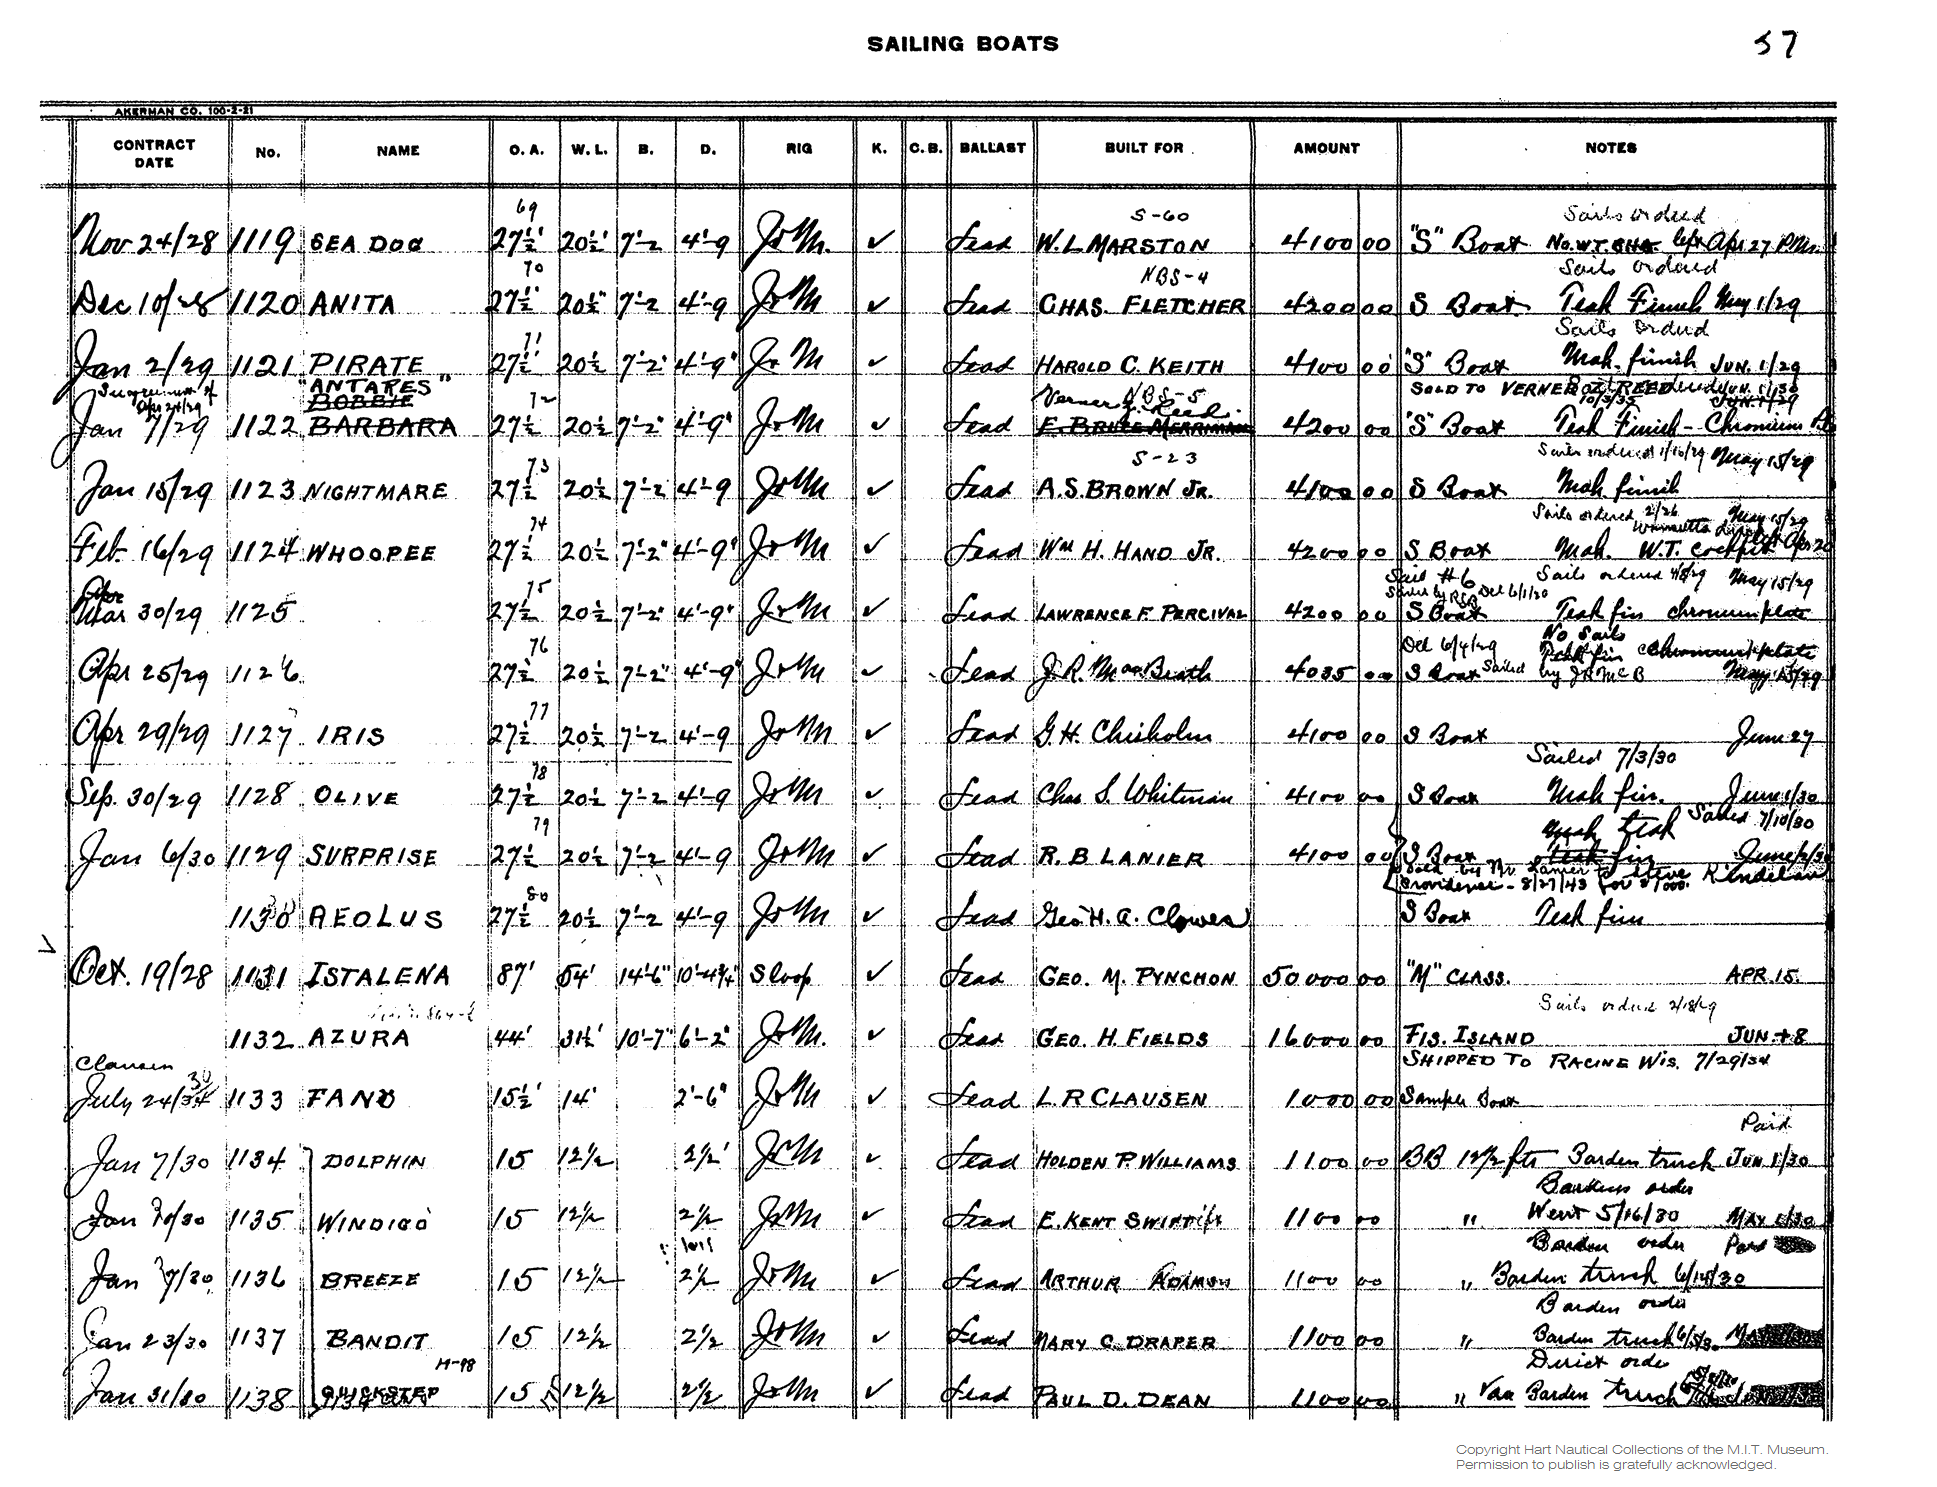 SAILING BOATS
57
AKERMAN CO. 100-2-21
CONTRACT DATE No. NAME O. A. W. L. B. D. RIG K. C. B. BALLAST BUILT FOR AMOUNT NOTES
69 S-60 Sails ordered
Nov 24/28 1119 SEA DOG 27½' 20½' 7'-2 4'-9 J & M. ✓ Lead W. L MARSTON 4100 00 "S" Boat No. W.T. left Apr 27 P.M.
70 NBS-4 Sails ordered
Dec 10/28 1120 ANITA 27½' 20½" 7'-2 4'-9 J & M ✓ Lead CHAS. FLETCHER 4200 00 S Boat Teak Finish May 1/29
71 Sails ordered
Jan 2/29 1121 PIRATE 27½' 20½ 7'-2" 4'-9" J & M ✓ Lead HAROLD C. KEITH 4100 00 "S" Boat Mah. finish JUN. 1/29
"ANTARES" NBS-5 SOLD TO VERNER Z. REED JUN. 1/30
Apr 24/29 BOBBIE 72 Verner Z. Reed. 10/3/35 JUN. 1/29
Jan 7/29 1122 BARBARA 27½ 20½ 7'-2" 4'-9" J & M ✓ Lead E. BRUCE MERRIMAN 4200 00 "S" Boat Teak Finish - Chromium
73 S-23 Sails ordered 1/16/29 May 15/29
Jan 15/29 1123 NIGHTMARE 27½ 20½ 7'-2 4'-9 J & M ✓ Lead A.S. BROWN JR. 4100 00 S Boat Mah finish
74 Sails ordered 2/26 May 15/29
Feb. 16/29 1124 WHOOPEE 27½' 20½ 7'-2" 4'-9" J & M ✓ Lead Wm H. HAND JR. 4200 00 S Boat Mah. W.T. cockpit Apr 20
Apr 75 Sail #6 Del 6/1/20 Sails ordered 4/8/29 May 15/29
Mar 30/29 1125 27½ 20½ 7'-2" 4'-9" J & M ✓ Lead LAWRENCE F. PERCIVAL 4200 00 S Boat Teak fin chromium plate
76 Del 6/4/29 No Sails
Teak fin chromium plate
Apr 25/29 1126 27½' 20½ 7'-2" 4'-9" J & M ✓ Lead J. R. MacBeath 4035 00 S Boat Sailed by JR McB May 15/29
77
Apr 29/29 1127 IRIS 27½ 20½ 7'-2 4'-9 J & M ✓ Lead G. H. Chisholm 4100 00 S Boat June 27
78 Sailed 7/3/30
Sep. 30/29 1128 OLIVE 27½ 20½ 7'-2 4'-9 J & M ✓ Lead Chas S. Whitman 4100 00 S Boat Mah fin. June 1/30
79 Mah teak Sailed 7/10/30
Jan 6/30 1129 SURPRISE 27½' 20½ 7'-2 4'-9 J & M ✓ Lead R. B LANIER 4100 00 S Boat teak fin June 1/30
Sold by Mr. Lanier to Steve Kindelan
80 Providence - 8/27/43 for $1000.
1130 AEOLUS 27½ 20½ 7'-2 4'-9 J & M ✓ Lead Geo H. A. Clowes S Boat Teak fin
✓
Oct. 19/28 1031 ISTALENA 87' 54' 14'-6" 10'-4¾" Sloop ✓ Lead GEO. M. PYNCHON 50000 00 "M" CLASS. APR. 15.
Sails ordered 2/18/29
1132 AZURA 44' 31½' 10'-7" 6'-2" J & M. ✓ Lead GEO. H. FIELDS 16000 00 FIS. ISLAND JUN + 8
Clausen SHIPPED TO RACINE WIS. 7/29/34
July 24/34 30 1133 FANO 15½' 14' 2'-6" J & M ✓ Lead L. R CLAUSEN 1000 00 Samper Boat
Paid
Jan 7/30 1134 DOLPHIN 15 12½ 2½' J & M ✓ Lead HOLDEN P. WILLIAMS 1100 00 BB 12½ ftr Barden truck JUN 1/30
Bardens order
Jan 20/30 1135 WINDIGO 15 12½ 2½ J & M ✓ Lead E. KENT SWIFT 1100 00 " Went 5/16/30 MAY 1/30
Barden order Paid
Jan 7/30 1136 BREEZE 15 12½ 2½ J & M ✓ Lead ARTHUR ADAMS 1100 00 " Barden truck 6/14/30
Barden order
Jan 23/30 1137 BANDIT 15 12½ 2½ J & M ✓ Lead MARY C. DRAPER 1100 00 " Barden truck
H-98 Direct order
Jan 31/30 1138 QUICKSTEP 15 12½ 2½ J & M ✓ Lead PAUL D. DEAN 1100 00 " Via Barden truck
Copyright Hart Nautical Collections of the M.I.T. Museum.
Permission to publish is gratefully acknowledged.